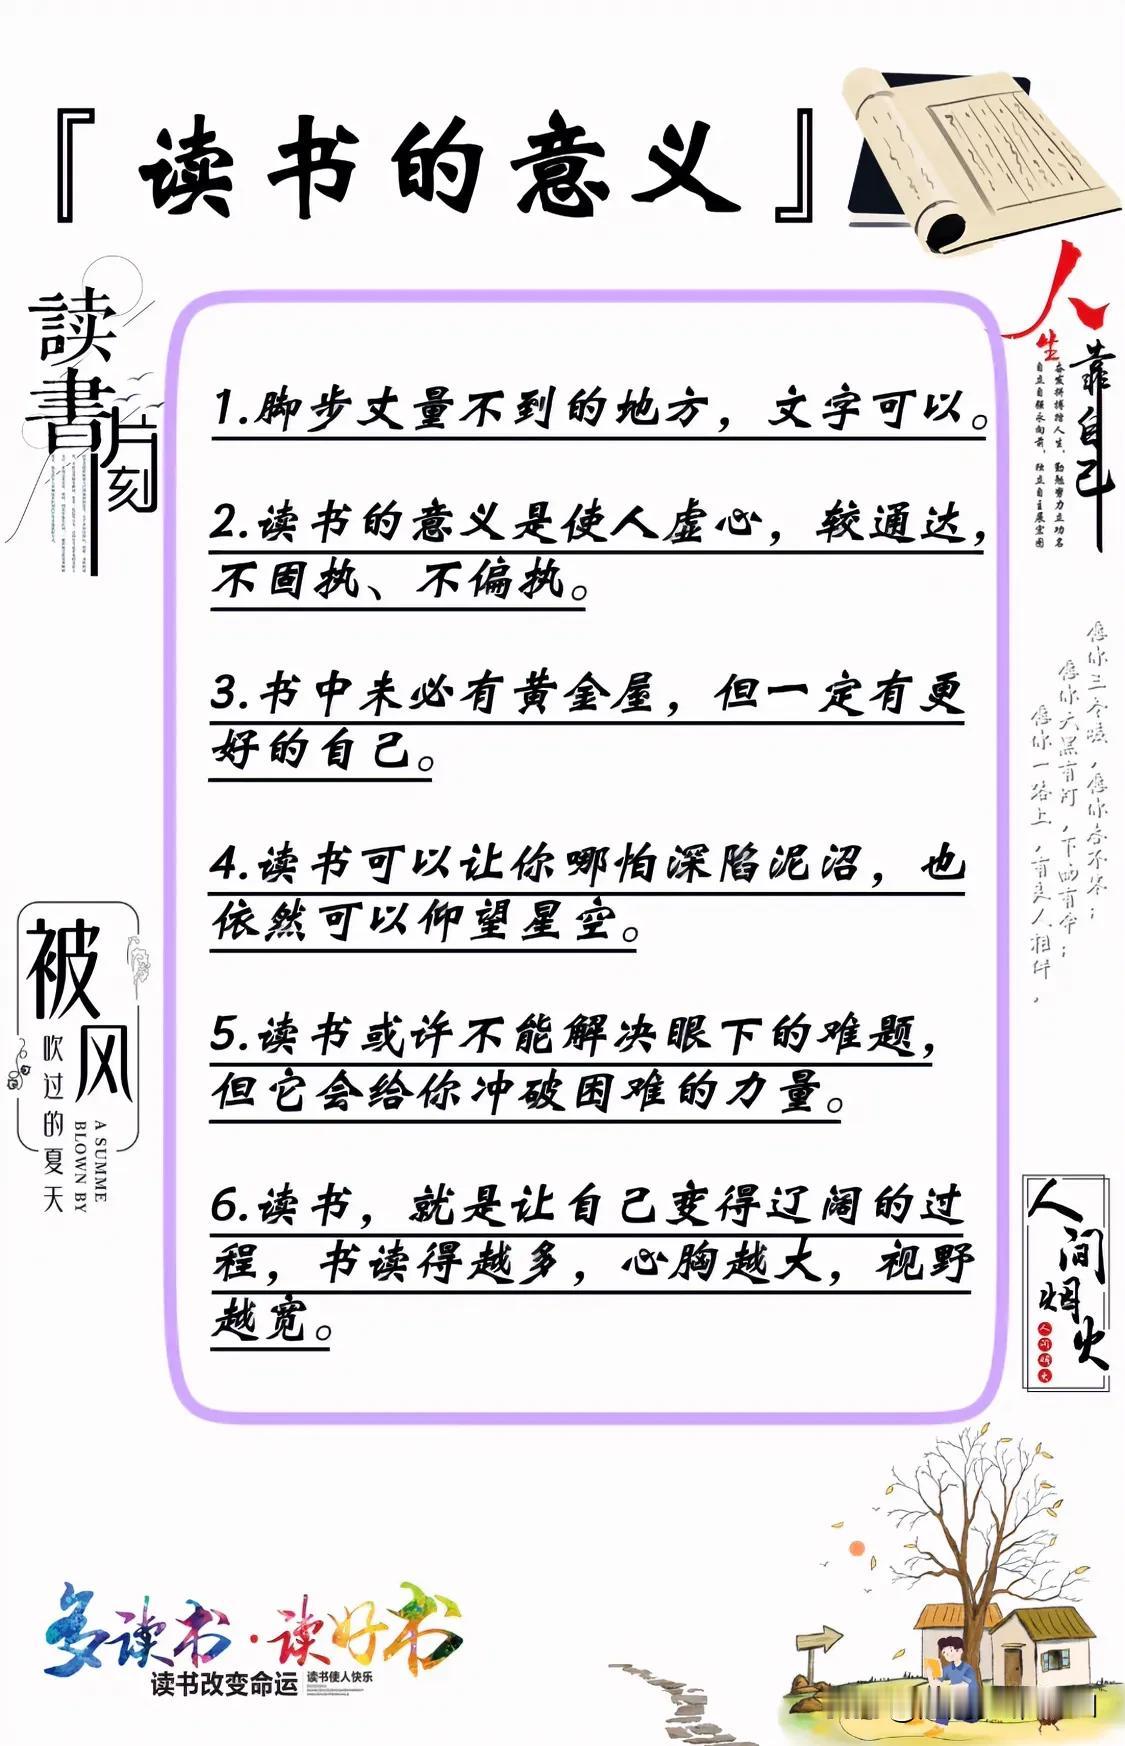 『读书的意义』
读書
片刻
人生靠自己
奋发拼搏踏人生，勤勉努力立功名
自立自强永向前，独立自主展宏图
1.脚步丈量不到的地方，文字可以。
2.读书的意义是使人虚心，较通达，
不固执、不偏执。
3.书中未必有黄金屋，但一定有更
好的自己。
4.读书可以让你哪怕深陷泥沼，也
依然可以仰望星空。
5.读书或许不能解决眼下的难题，
但它会给你冲破困难的力量。
6.读书，就是让自己变得辽阔的过
程，书读得越多，心胸越大，视野
越宽。
愿你三冬暖，愿你春不寒；
愿你天黑有灯，下雨有伞；
愿你一路上，有良人相伴。
被风
吹过的夏天
A SUMME
BLOWN BY
人间烟火
人间烟火
多读书·读好书
读书改变命运
读书使人快乐